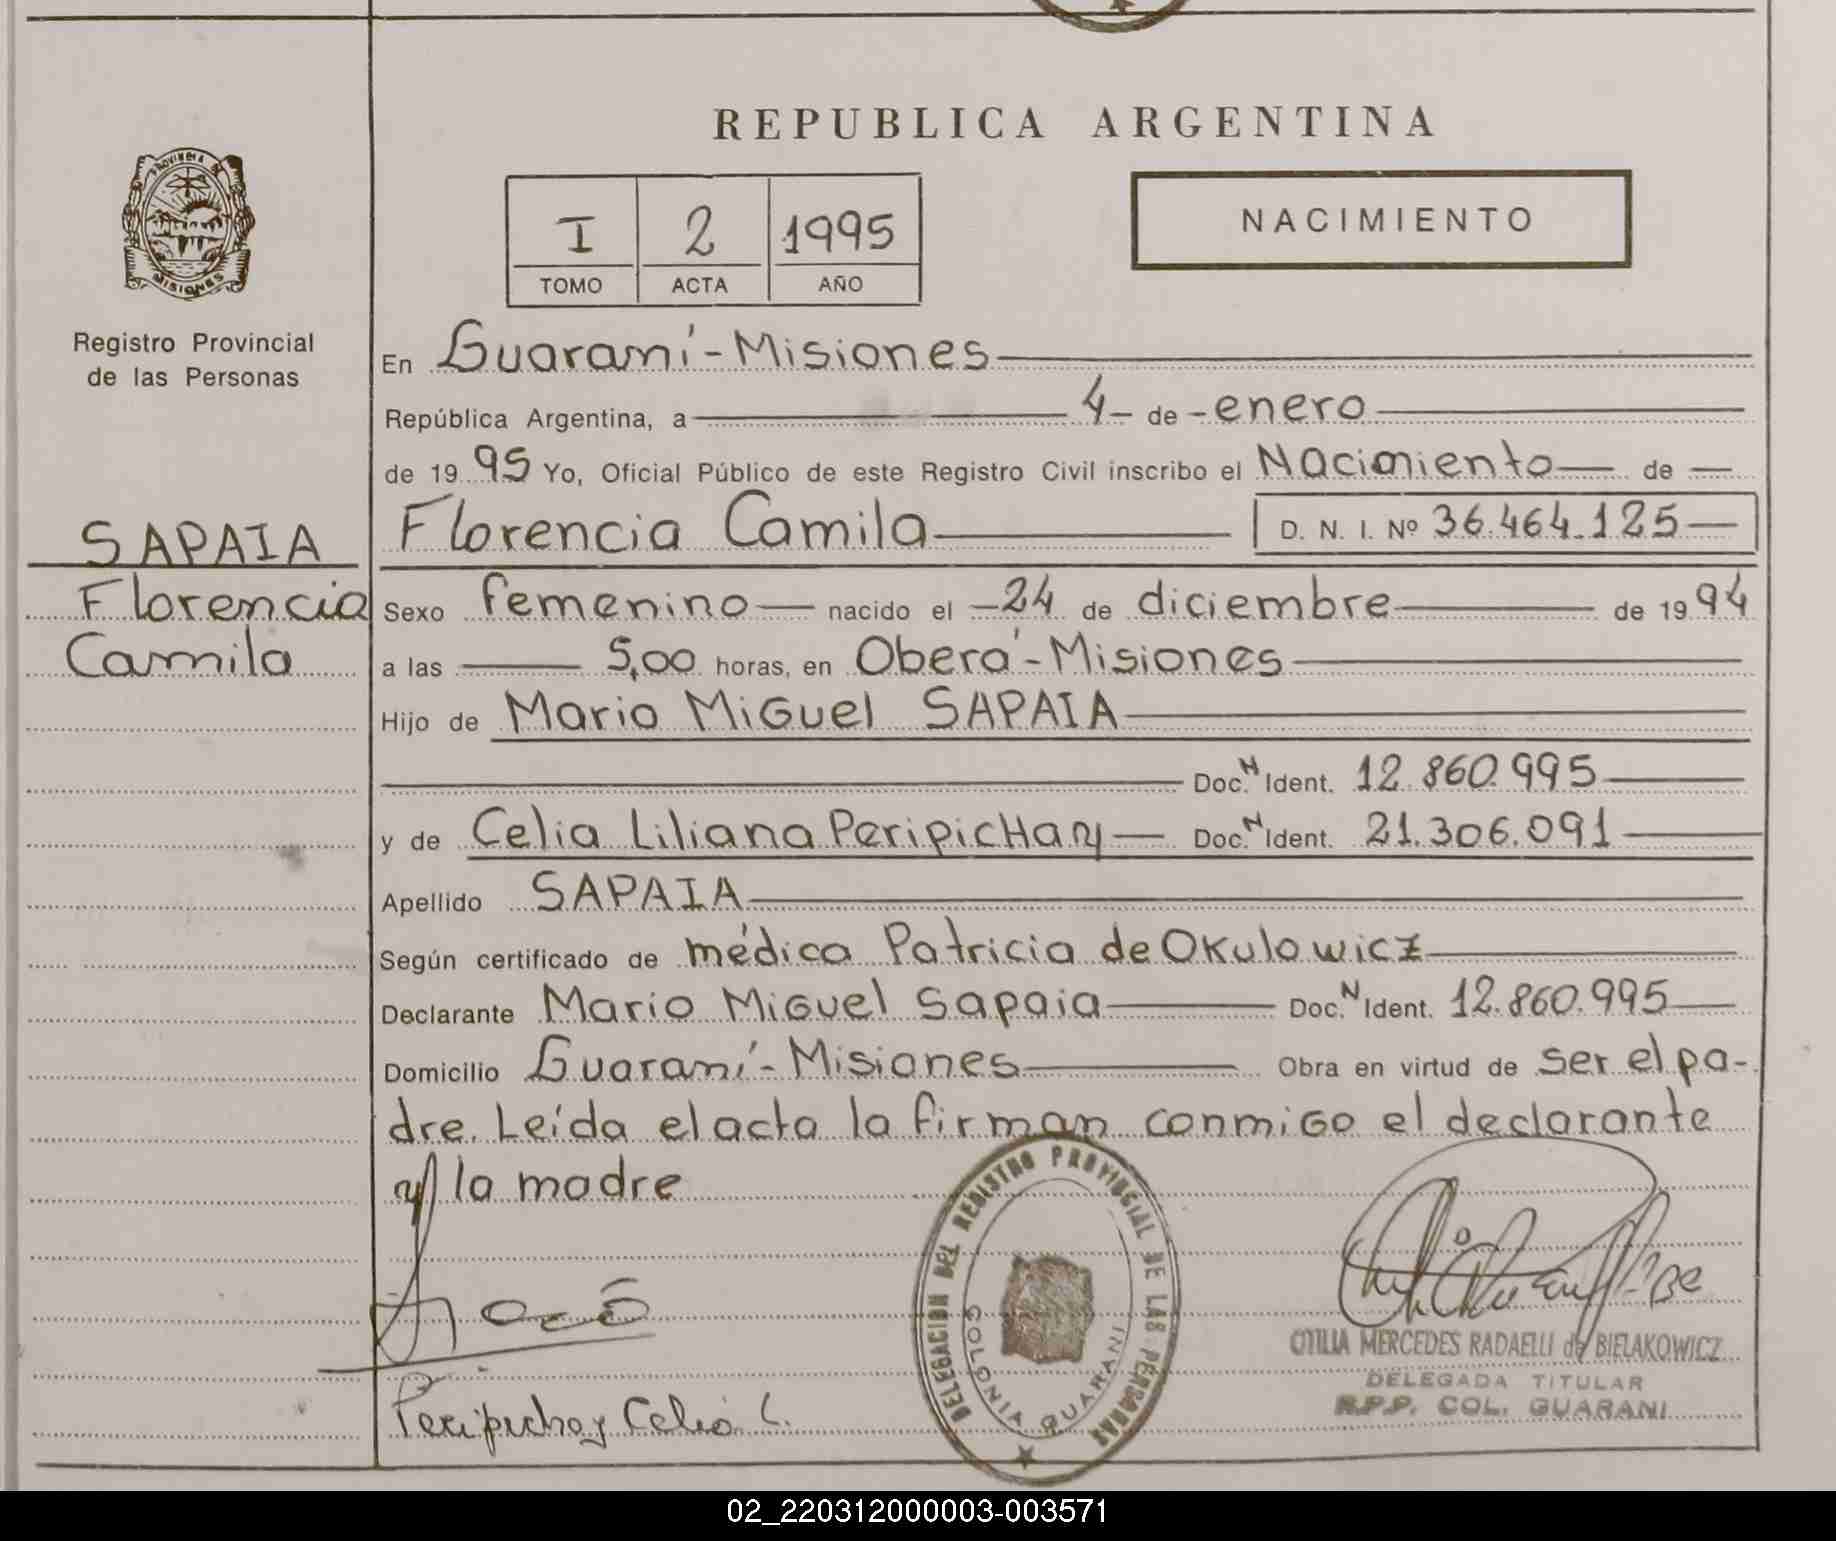 REPUBLICA ARGENTINA
PROVINCIA DE
MISIONES
Registro Provincial
de las Personas
I 2 1995
TOMO ACTA AÑO
NACIMIENTO
En Guaraní - Misiones
República Argentina, a 4 de enero
de 1995 Yo, Oficial Público de este Registro Civil inscribo el Nacimiento de
SAPAIA
Florencia
Camila
Florencia Camila D. N. I. Nº 36.464.125
Sexo femenino nacido el 24 de diciembre de 1994
a las 5,00 horas, en Oberá - Misiones
Hijo de Mario Miguel SAPAIA
Doc. N Ident. 12.860.995
y de Celia Liliana Peripichay Doc. N Ident. 21.306.091
Apellido SAPAIA
Según certificado de médica Patricia de Okulowicz
Declarante Mario Miguel Sapaia Doc. N Ident. 12.860.995
Domicilio Guaraní - Misiones Obra en virtud de ser el pa-
dre. Leída el acta la firman conmigo el declarante
y la madre
DELEGACION DEL REGISTRO PROVINCIAL DE LAS PERSONAS
COLONIA GUARANI
Peripichay Celia L.
OTILIA MERCEDES RADAELLI de BIELAKOWICZ
DELEGADA TITULAR
R.P.P. COL. GUARANI
02_220312000003-003571